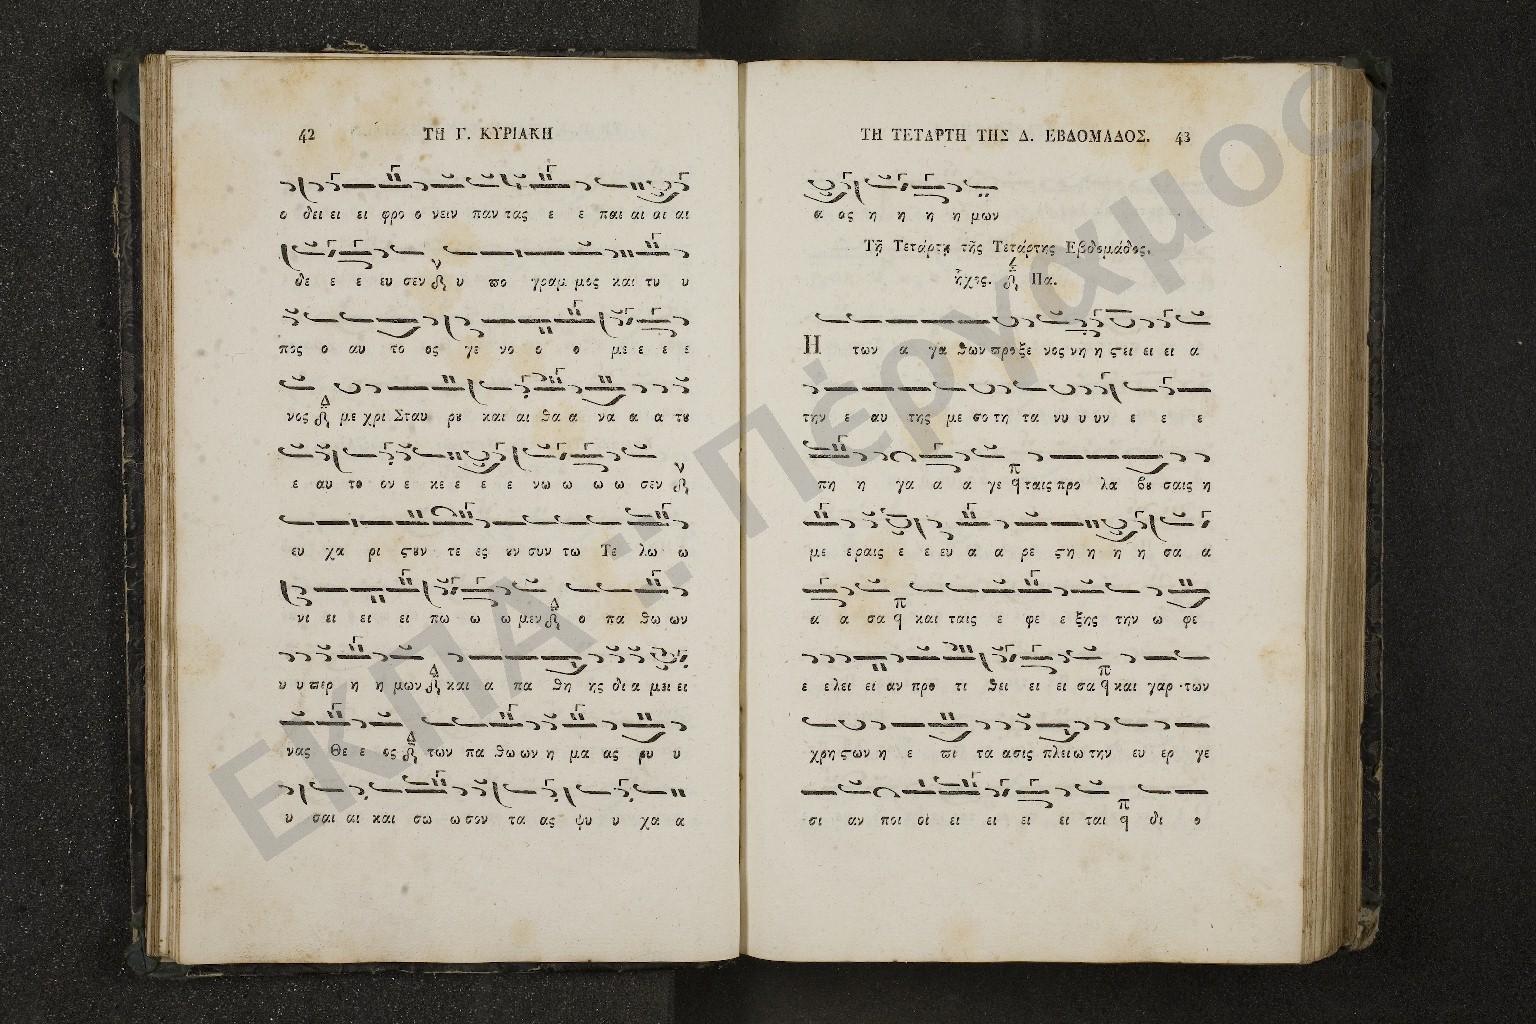 42 ΤΗ Γ. ΚΥΡΙΑΚΗ
ο δει ει ει φρο ο νειν παν τας ε ε παι αι αι αι
δε ε ε ευ σεν υ πο γραμ μος και τυ υ
πος ο αυ το ος γε νο ο ο με ε ε ε
νος με χρι Σταυ ρȣ και αι θα α να α α τȣ
ε αυ το ον ε κε ε ε ε νω ω ω ω σεν
ευ χα ρι ϛȣν τε ες ȣν συν τω Τε λω ω
νι ει ει ει πω ω ω μεν ο πα θω ων
υ υ περ η η μων και α πα θη ης δι α μει ει
νας Θε ε ος των πα θω ων η μα ας ρυ υ
υ σαι αι και σω ω σον τα ας ψυ υ χα α
ΤΗ ΤΕΤΑΡΤΗ ΤΗΣ Δ. ΕΒΔΟΜΑΔΟΣ. 43
α ος η η η η μων
Τῇ Τετάρτῃ τῆς Τετάρτης Εβδομάδος.
ἦχος. Πα.
Η των α γα θων προ ξε νος νη η ϛει ει ει α
την ε αυ της με σο τη τα νυ υ υν ε ε ε
πη η γα α α γε ταις προ λα βȣ σαις η
με ε ραις ε ε ευ α α ρε ϛη η η η σα α
α α σα και ταις ε φε ε ξης την ω φε
ε ε λει ει αν προ τι θει ει ει σα και γαρ των
χρη ϛων η ε πι τα ασις πλειω την ευ ερ γε
σι αν ποι οι ει ει ει ει ται δι ο
ΕΚΠΑ :: Πέργαμος